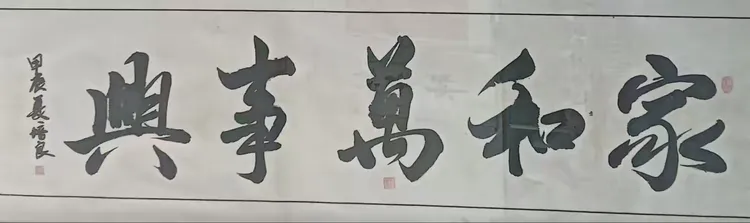 家和萬事興
甲辰夏培良